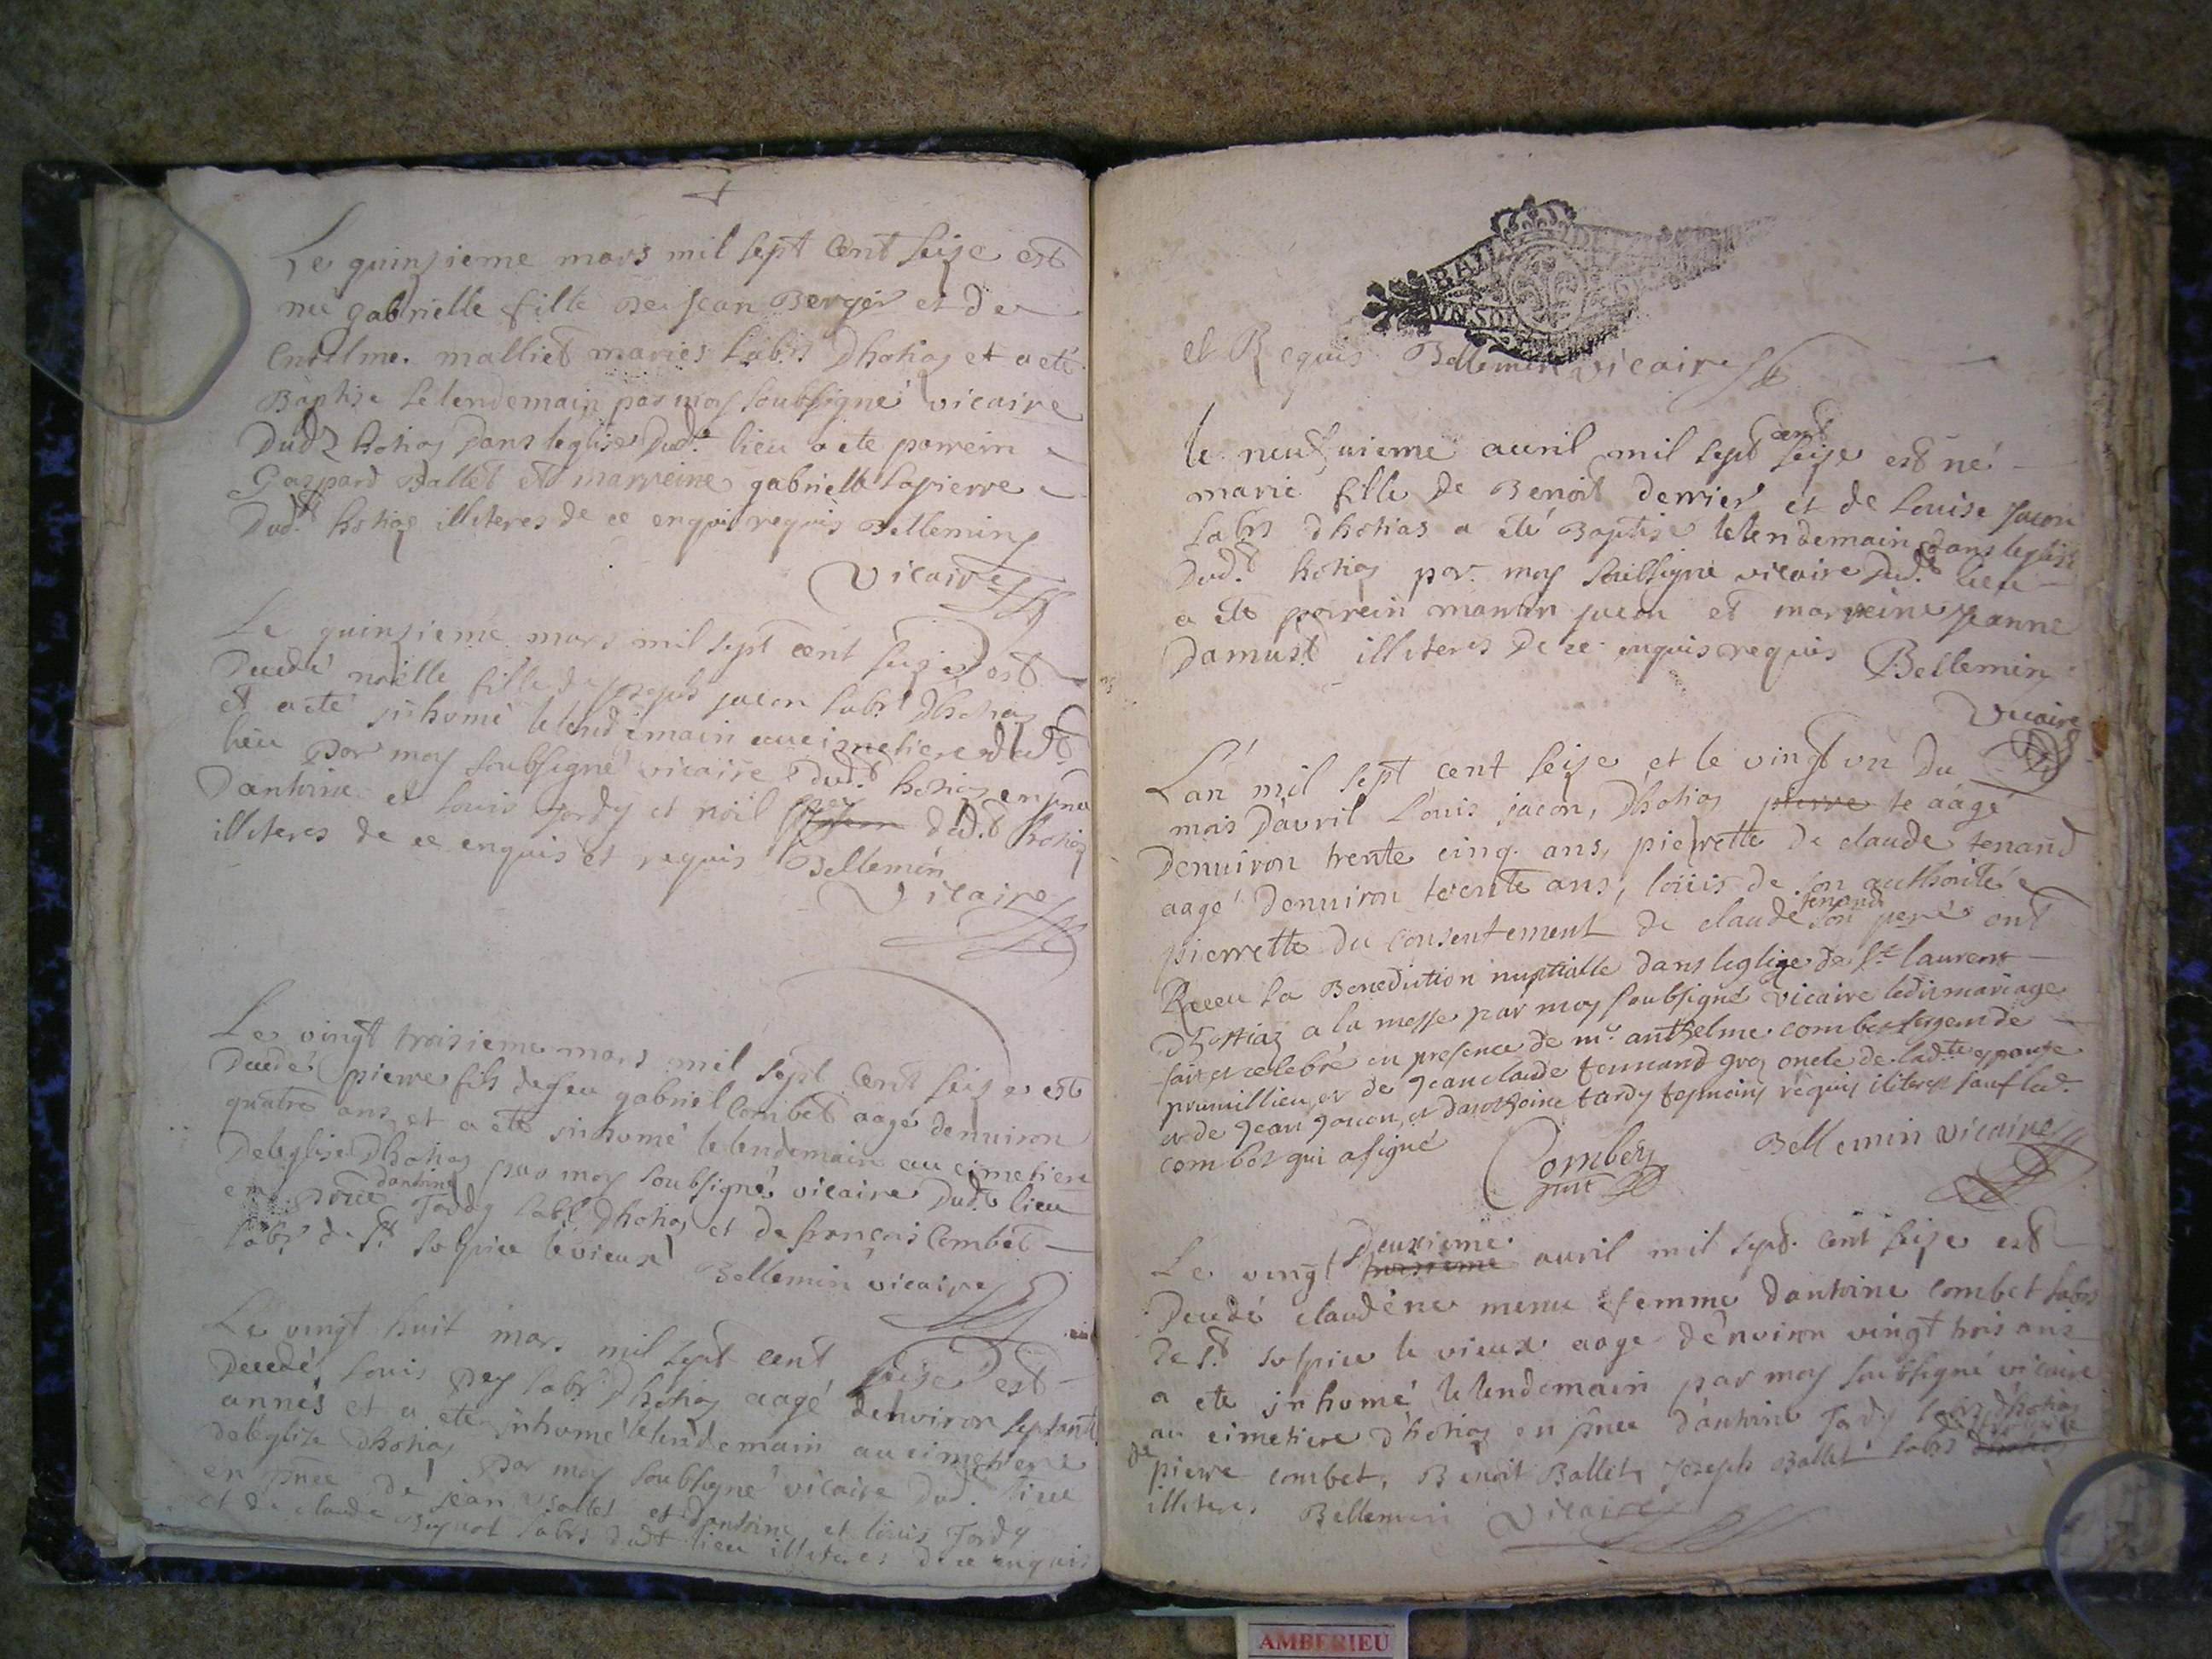 Le quinzieme mars mil sept cent seize est
née gabrielle fille de Jean Berger et de
malliet mariés labrs dhotias et a eté
Baptise le lendemain par moy soubsigné vicaire
dud hotias dans leglise dudt lieu a ete parrein
Gaspard Ballet et marreine gabrielle lapierre
dudt hotias illiteres de ce enquis requis Bellemin
vicaire
Le quinzieme mars mil sept cent seize est
decedé fille de joseph jacon labr dhotias
et a eté inhumé le lendemain au cimetiere dudt
lieu par moy soubsigné vicaire dudt hotias en pnce
dantoine et louis tardy et noil pey dudt hotias
illiteres de ce enquis et requis Bellemin
vicaire
Le vingt troisieme mars mil sept cent seize est
decedé pierre fils de feu gabriel Combet aagé denuiron
quatre ans et a eté inhumé le lendemain au cimetiere
deleglise dhotias par moy soubsigné vicaire dudt lieu
en pnce dantoine Tardy labr dhotias et de francois Combet
labr de St sulpice le vieux Bellemin vicaire
Le vingt huit mars mil sept cent seize est
decedé louis pey labr dhotias aagé denuiron septante
annés et a eté inhumé le lendemain au cimetiere
deleglise dhotias par moy soubsigné vicaire dudt lieu
en pnce de jean Ballet et dantoine et louis Tardy
et de claude labrs dudt lieu illiteres de ce enquis
UN SOL
et Requis Bellemin vicaire
le neufuieme auril mil sept cent seize est né
marie fille de Benoit derrier et de Louise jacon
labrs dhotias a eté Baptise le lendemain dans leglise
dudt hotias par moy soubsigné vicaire dudt lieu
a eté parrein jacon et marreine jeanne
damust illiteres de ce enquis requis Bellemin
vicaire
L'an mil sept cent seize et le vingt un du
mois dauril Louis jacon, dhotias pierre te aagé
denuiron trente cinq ans, pierrette de claude tenand
aagé denuiron trente ans, loüis de son authorité
pierrette du consentement de claude tenand son pere ont
Receu la Benediction nuptialle dans leglize de St laurent
dhostiaz a la messe par moy soubsigné vicaire ledit mariage
fait et celebré en presence de mr anthelme combet sergen de
prumillieu, et de jean claude tennand oncle de ladte epouse
et de jean jacon, et danthoine tardy tesmoins requis iliteres sauf led.
combet qui a signé
Combet Bellemin vicaire
Le vingt deuxieme troisieme auril mil sept cent seize est
decedé claudene femme dantoine combet labr
de St sulpice le vieux aage denuiron vingt trois ans
a eté inhumé le lendemain par moy soubsigné vicaire
au cimetiere dhotias en pnce dantoine Tardy labr dhotias
de pierre combet, Benoit Ballet, joseph Ballet labrs
illiteres Bellemin vicaire
AMBERIEU